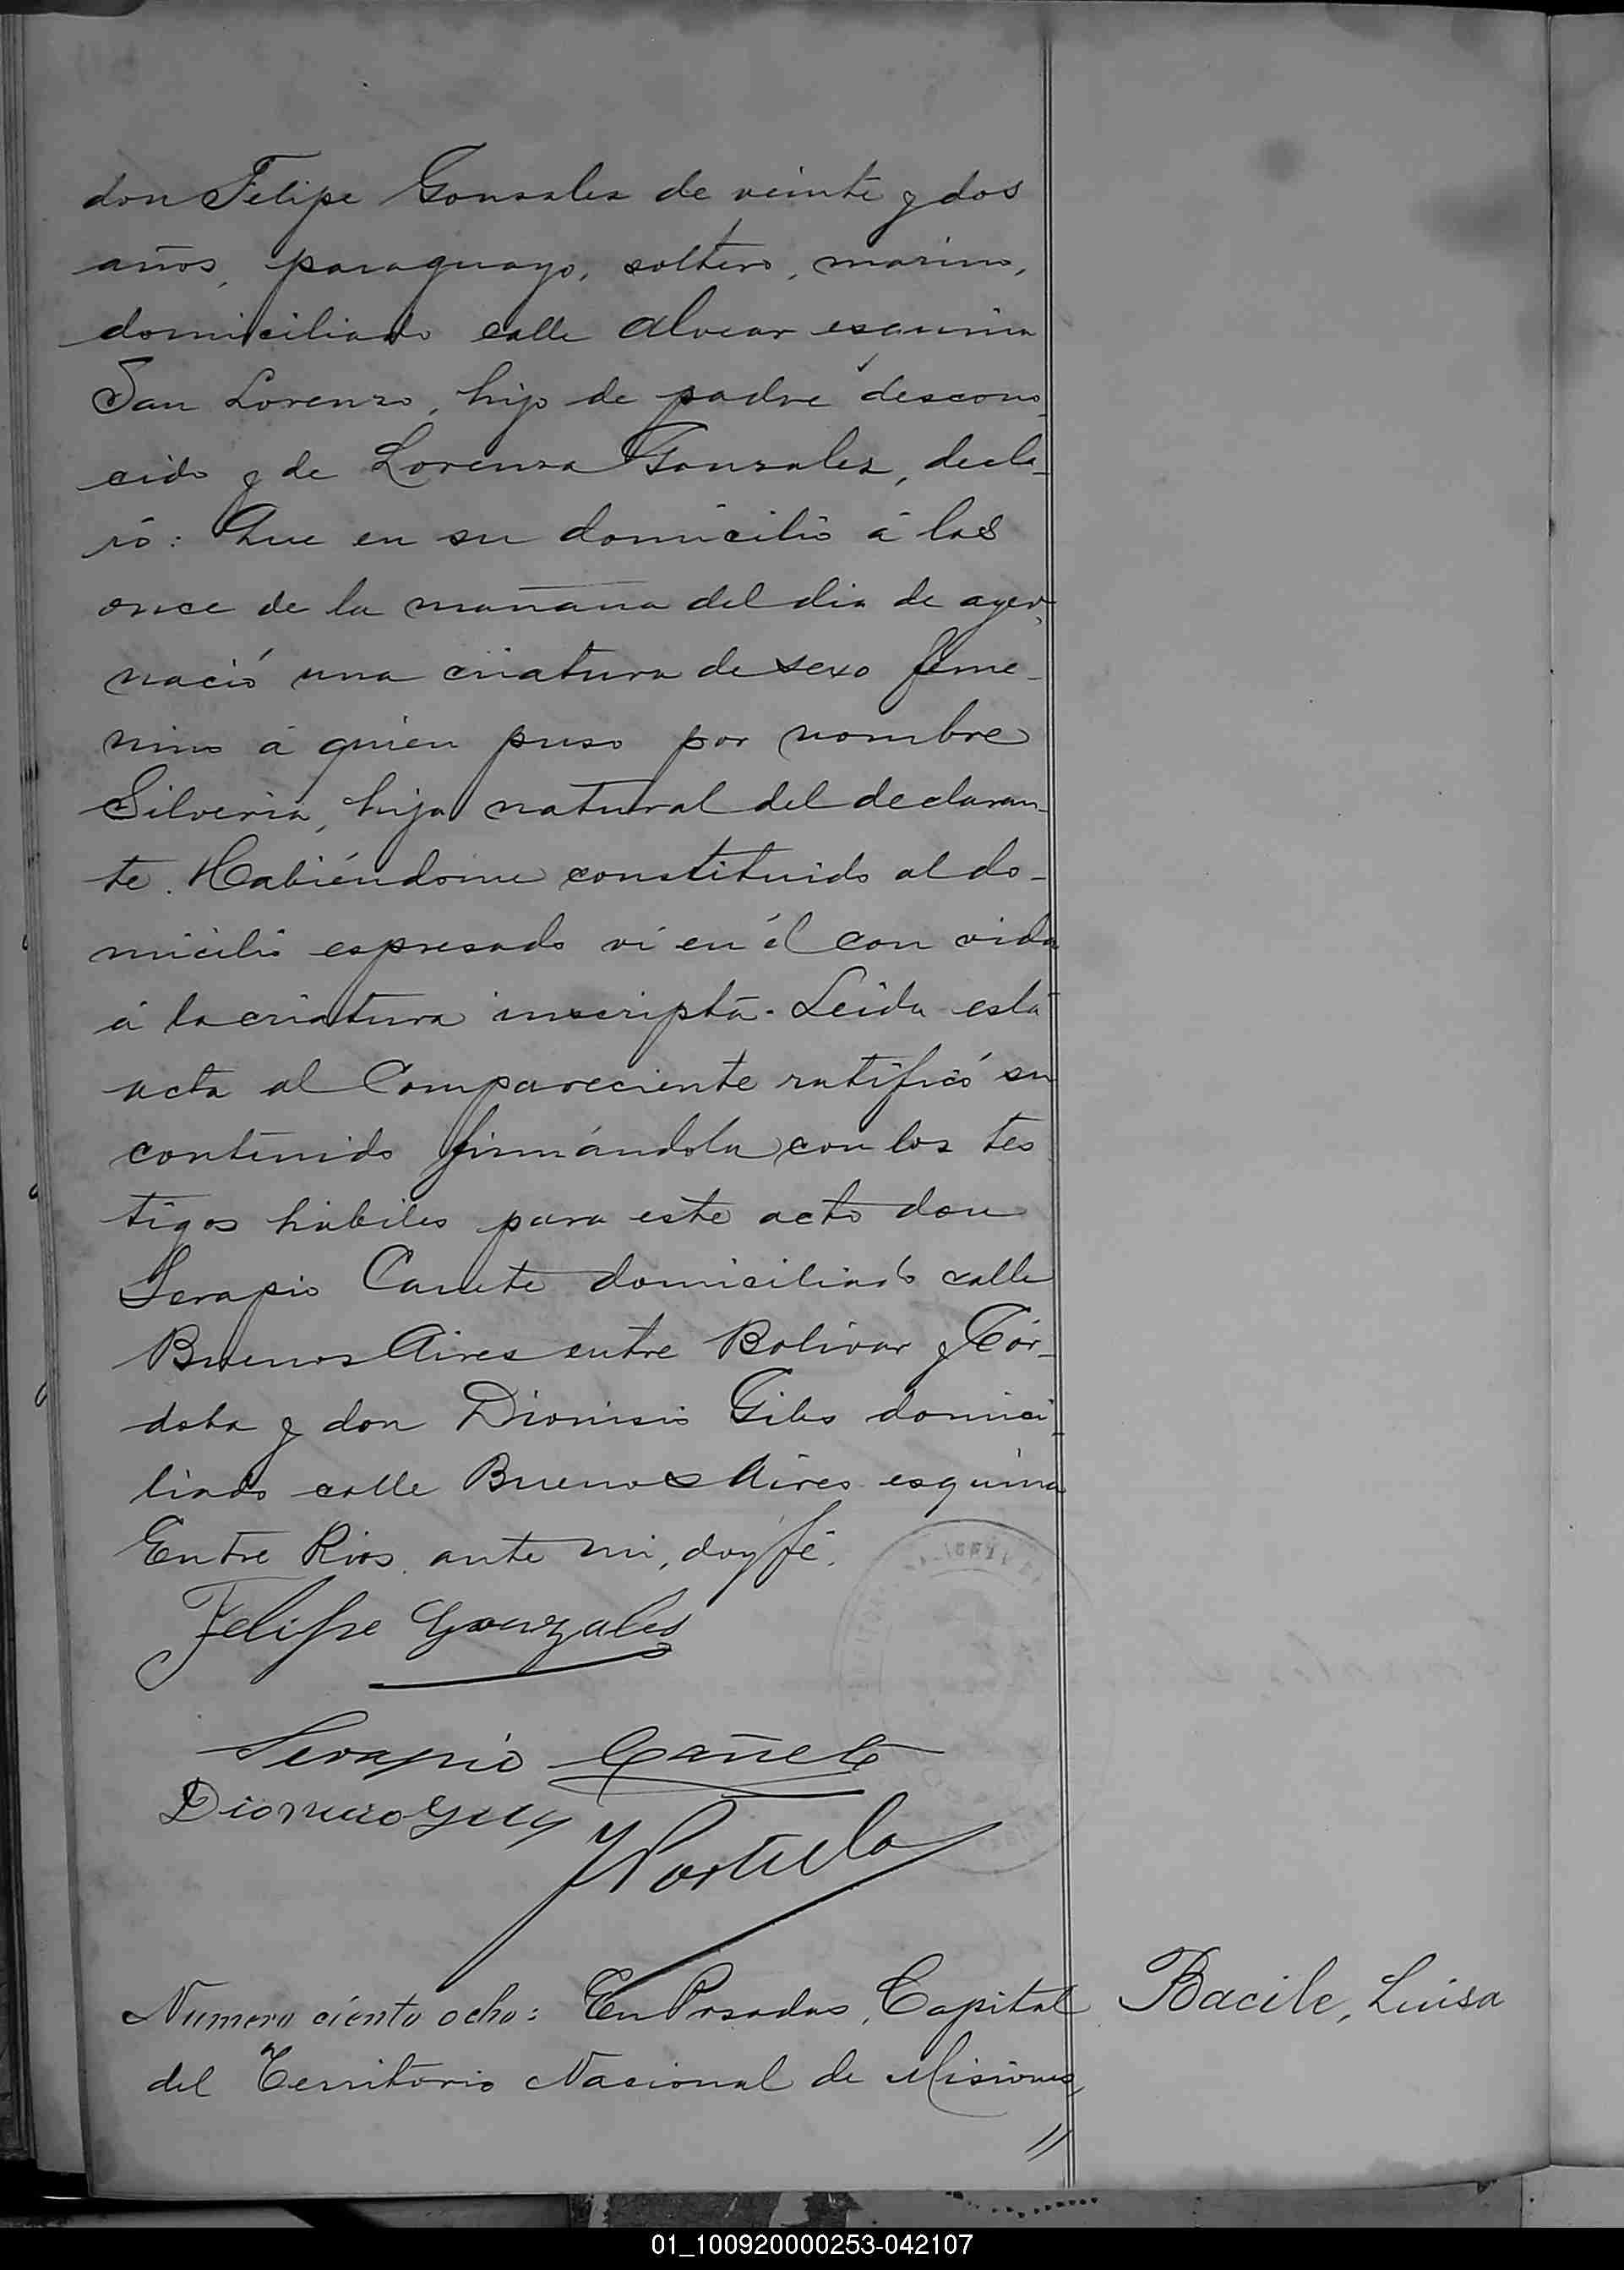 don Felipe Gonzalez de veinte y dos
años, paraguayo, soltero, marino,
domiciliado calle Alvear esquina
San Lorenzo, hijo de padre descono_
cido y de Lorenza Gonzalez, decla_
ró: Que en su domicilio á las
once de la mañana del dia de ayer,
nació una criatura de sexo feme_
nino á quien puso por nombre
Silveria, hija natural del declaran_
te. Habiéndome constituido al do_
micilio espresado vi en él con vida
á la criatura inscripta. Leida esta
acta al Compareciente ratificó su
contenido firmándola con los tes
tigos hábiles para este acto don
Serapio Cañete domiciliado calle
Buenos Aires entre Bolivar y Cór_
doba y don Dionisio Giles domici_
liado calle Buenos Aires esquina
Entre Rios. ante mi, doy fé.
Felipe Gonzales
Serapio Cañete
Dionicio
Numero ciento ocho: En Posadas, Capital
Bacile, Luisa
del Territorio Nacional de Misiones,
//
01_100920000253-042107